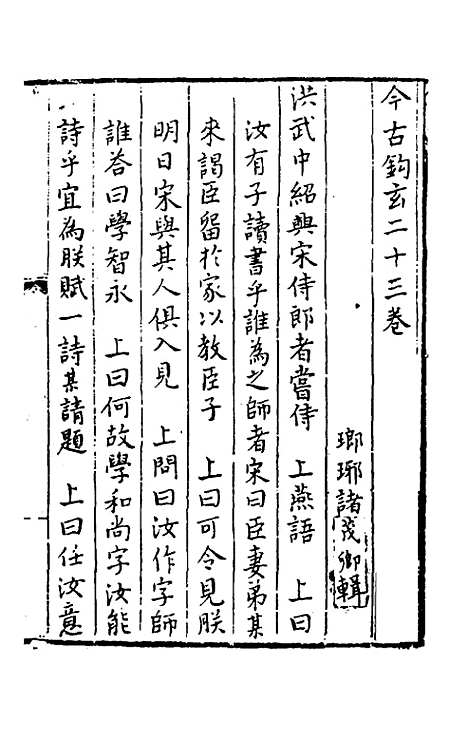 今古鈎玄二十三卷
瑯琊諸茂卿輯
洪武中紹興宋侍郎者嘗侍　上燕語　上曰
汝有子讀書乎誰為之師者宋曰臣妻弟某
來謁臣留於家以教臣子　上曰可令見朕
明日宋與其人俱入見　上問曰汝作字師
誰荅曰學智永　上曰何故學和尚字汝能
詩乎宜為朕賦一詩某請題　上曰任汝意